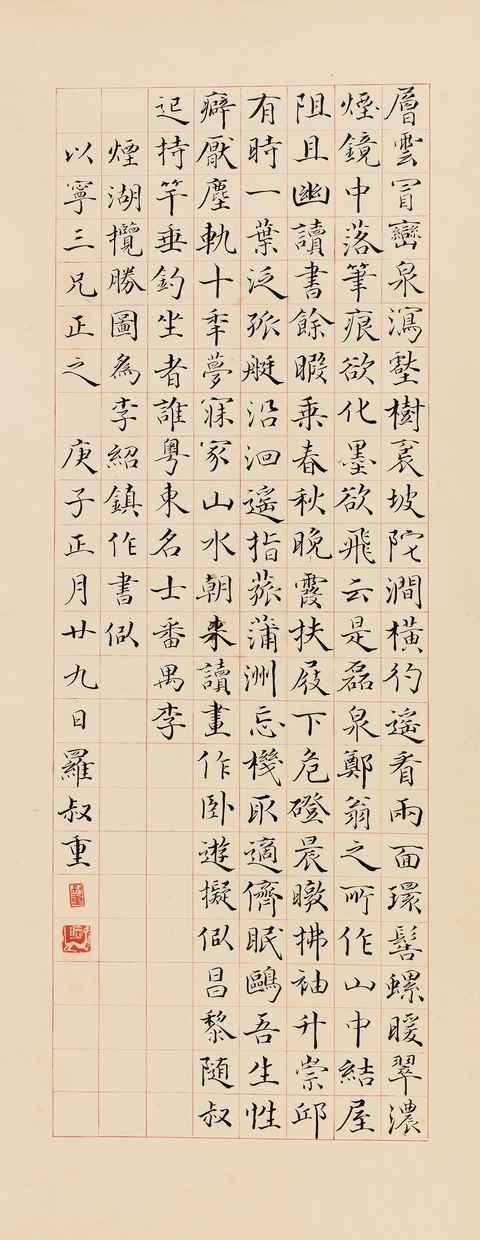 層雲冒巒泉瀉壑樹裊坡陀澗橫彴遙看兩面環髻螺暖翠濃
煙鏡中落筆痕欲化墨欲飛云是磊泉鄭翁之所作山中結屋
阻且幽讀書餘暇乘春秋晚霞扶屐下危磴晨暾拂袖升崇邱
有時一葉泛孤艇沿洄遙指菰蒲洲忘機取適儕眠鷗吾生性
癖厭塵軌十年夢寐家山水朝來讀畫作卧遊擬似昌黎隨叔
起持竿垂釣坐者誰粵東名士番禺李
煙湖攬勝圖為李紹鎮作書似
以寧三兄正之 庚子正月廿九日羅叔重